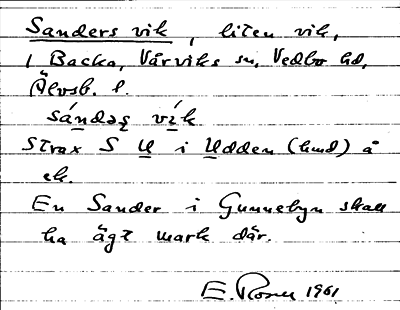 Sanders vik, liten vik,
i Backa, Vårviks sn, Vedbo hd,
Älvsb. l.
sándəʂ vík
Strax S U i Udden (hmd) å
ek.
En Sander i Gunnebyn skall
ha ägt mark där.
E. Rosen 1961